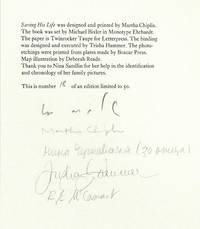 Saving His Life was designed and printed by Martha Chiplis.
The book was set by Michael Bixler in Monotype Ehrhardt.
The paper is Twinrocker Taupe for Letterpress. The binding
was designed and executed by Trisha Hammer. The photo-
etchings were printed from plates made by Boxcar Press.
Map illustration by Deborah Reade.
Thank you to Nina Sandlin for her help in the identification
and chronology of her family pictures.
This is number 18 of an edition limited to 50.
Martha Chiplis